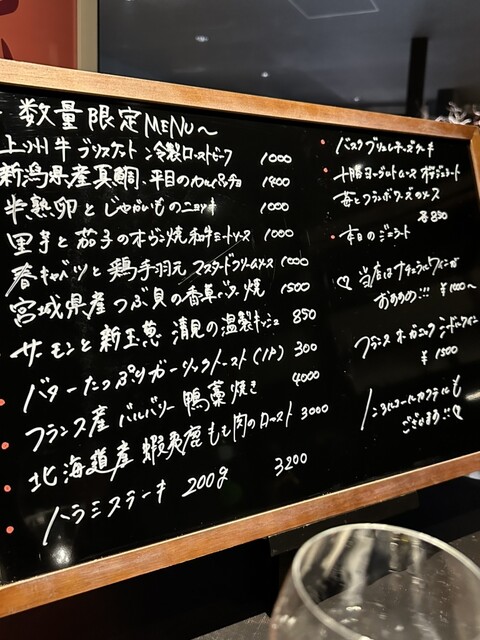 数量限定MENU〜
上州牛ブリスケット冷製ローストビーフ 1000
新潟県産真鯛、平目のカルパッチョ 1400
半熟卵とじゃがいものニョッキ 1000
里芋と茄子のオーヴン焼 和牛ミートソース 1000
春キャベツと鶏手羽元 マスタードクリームソース 1000
宮城県産つぶ貝の香草バター焼 1500
サーモンと新玉葱 清見の温製キッシュ 850
バターたっぷりガーリックトースト(1P) 300
フランス産バルバリー鴨藁焼き 4000
北海道産蝦夷鹿もも肉のロースト 3000
ハラミステーキ 200g 3200
バスクブリュレチーズケーキ
十勝ヨーグルトムース
苺とフランボワーズのソース
各850
本日のジェラート
♡ 当店はナチュラルワインが
おすすめ!!! ¥1000〜
フランス オーガニック シードルワイン
¥1500
ノンアルコールカクテルも
ございます!!♡